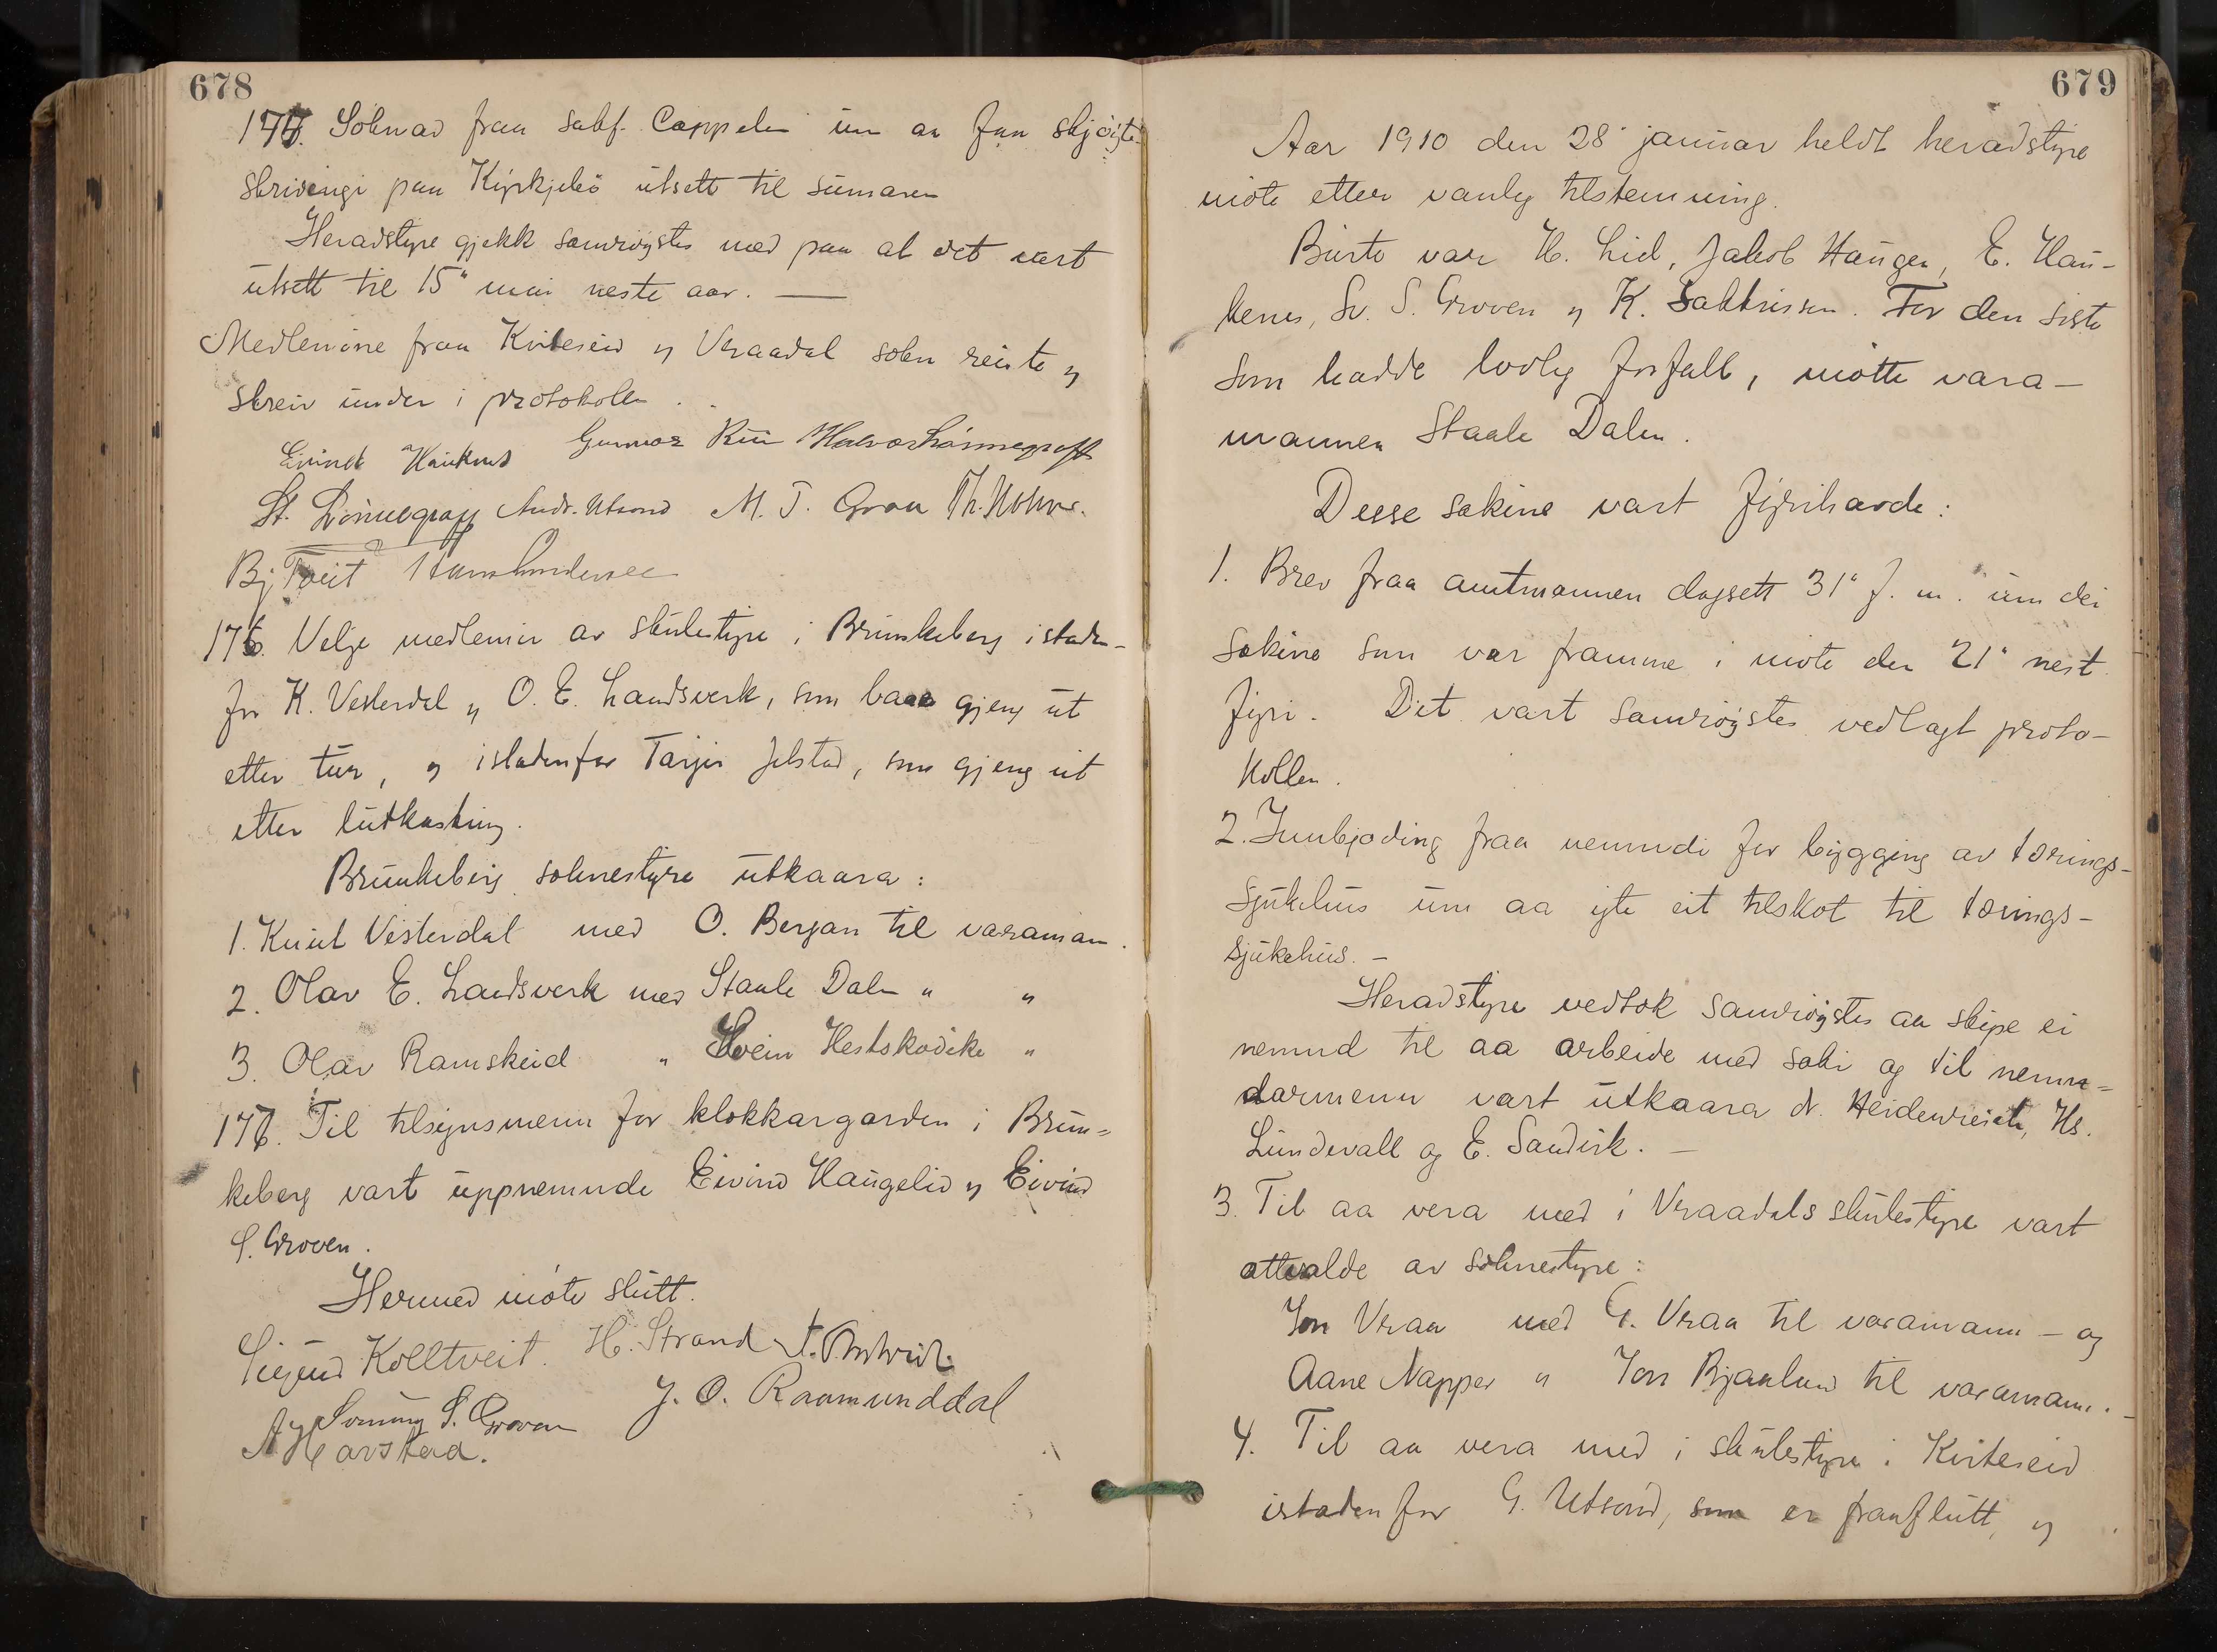 678
174. Søknad fraa sakf. Cappelen um aa faa skjøyte-
skrivingi paa Kyrkjebø utsett til sumaren
Heradstyre gjekk samrøystes med paa at det vart
utsett til 15" mai neste aar. —
Medlemine fraa Kviteseid og Vraadal sokn reiste og
skreiv under i protokollen.
Eivind Haukenes Gunnar Rui Halvor Lønnegraff
St. Lønnegraff Andr. Utsond M. T. Graa Th.
Bj. Tveit Hans Lundevall
175. Velje medlemir av skulestyre i Brunkeberg istaden-
for K. Vesterdal og O. E. Landsverk, som baae gjeng ut
etter tur, og istadenfor Tarjei Jelstad, som gjeng ut
etter lutkasting.
Brunkeberg soknestyre utkaara:
1. Knut Vesterdal med O. Berjan til varamann.
2. Olav E. Landsverk med Staale Dalen " "
3. Olav Ramskeid " Svein Hestskodike "
176. Til tilsynsmenn for klokkargarden i Brun=
keberg vart uppnemnde Eivind Haugelid og Eivind
S. Groven.
Hermed møte slutt.
Sigurd Kolltveit. H. Strand
Sveinung S. Groven J. O. Raamunddal
A. Harstad.
679
Aar 1910 den 28" januar heldt heradstyre
møte etter vanleg tilstemning.
Burte var H. Lid, Jakob Haugen, E. Hau-
kenes, Sv. S. Groven og K. Sakkrissen. For den siste
som hadde lovleg forfall, møtte vara-
mannen Staale Dalen.
Desse sakine vart fyrihavde:
1. Brev fraa amtmannen dagsett 31" f. m. um dei
sakine som var framme i møte den 21" nest
fyri. Det vart samrøystes vedlagt proto-
kollen.
2. Innbjoding fraa nemndi for bygging av tærings-
sjukehus um aa yte eit tilskot til tærings-
sjukehus. —
Heradstyre vedtok samrøystes aa skipe ei
nemnd til aa arbeide med saki og til nemn=
darmenn vart utkaara dr. Heidenreich, Hs.
Lundevall og E. Sandvik. —
3. Til aa vera med i Vraadals skulestyre vart
attvalde av soknestyre:
Jon Vraa med G. Vraa til varamann — og
Aane Napper " Jon Bjaaland til varamann. —
4. Til aa vera med i skulestyre i Kviteseid
istaden for G. Utsond, som er fraaflutt, og